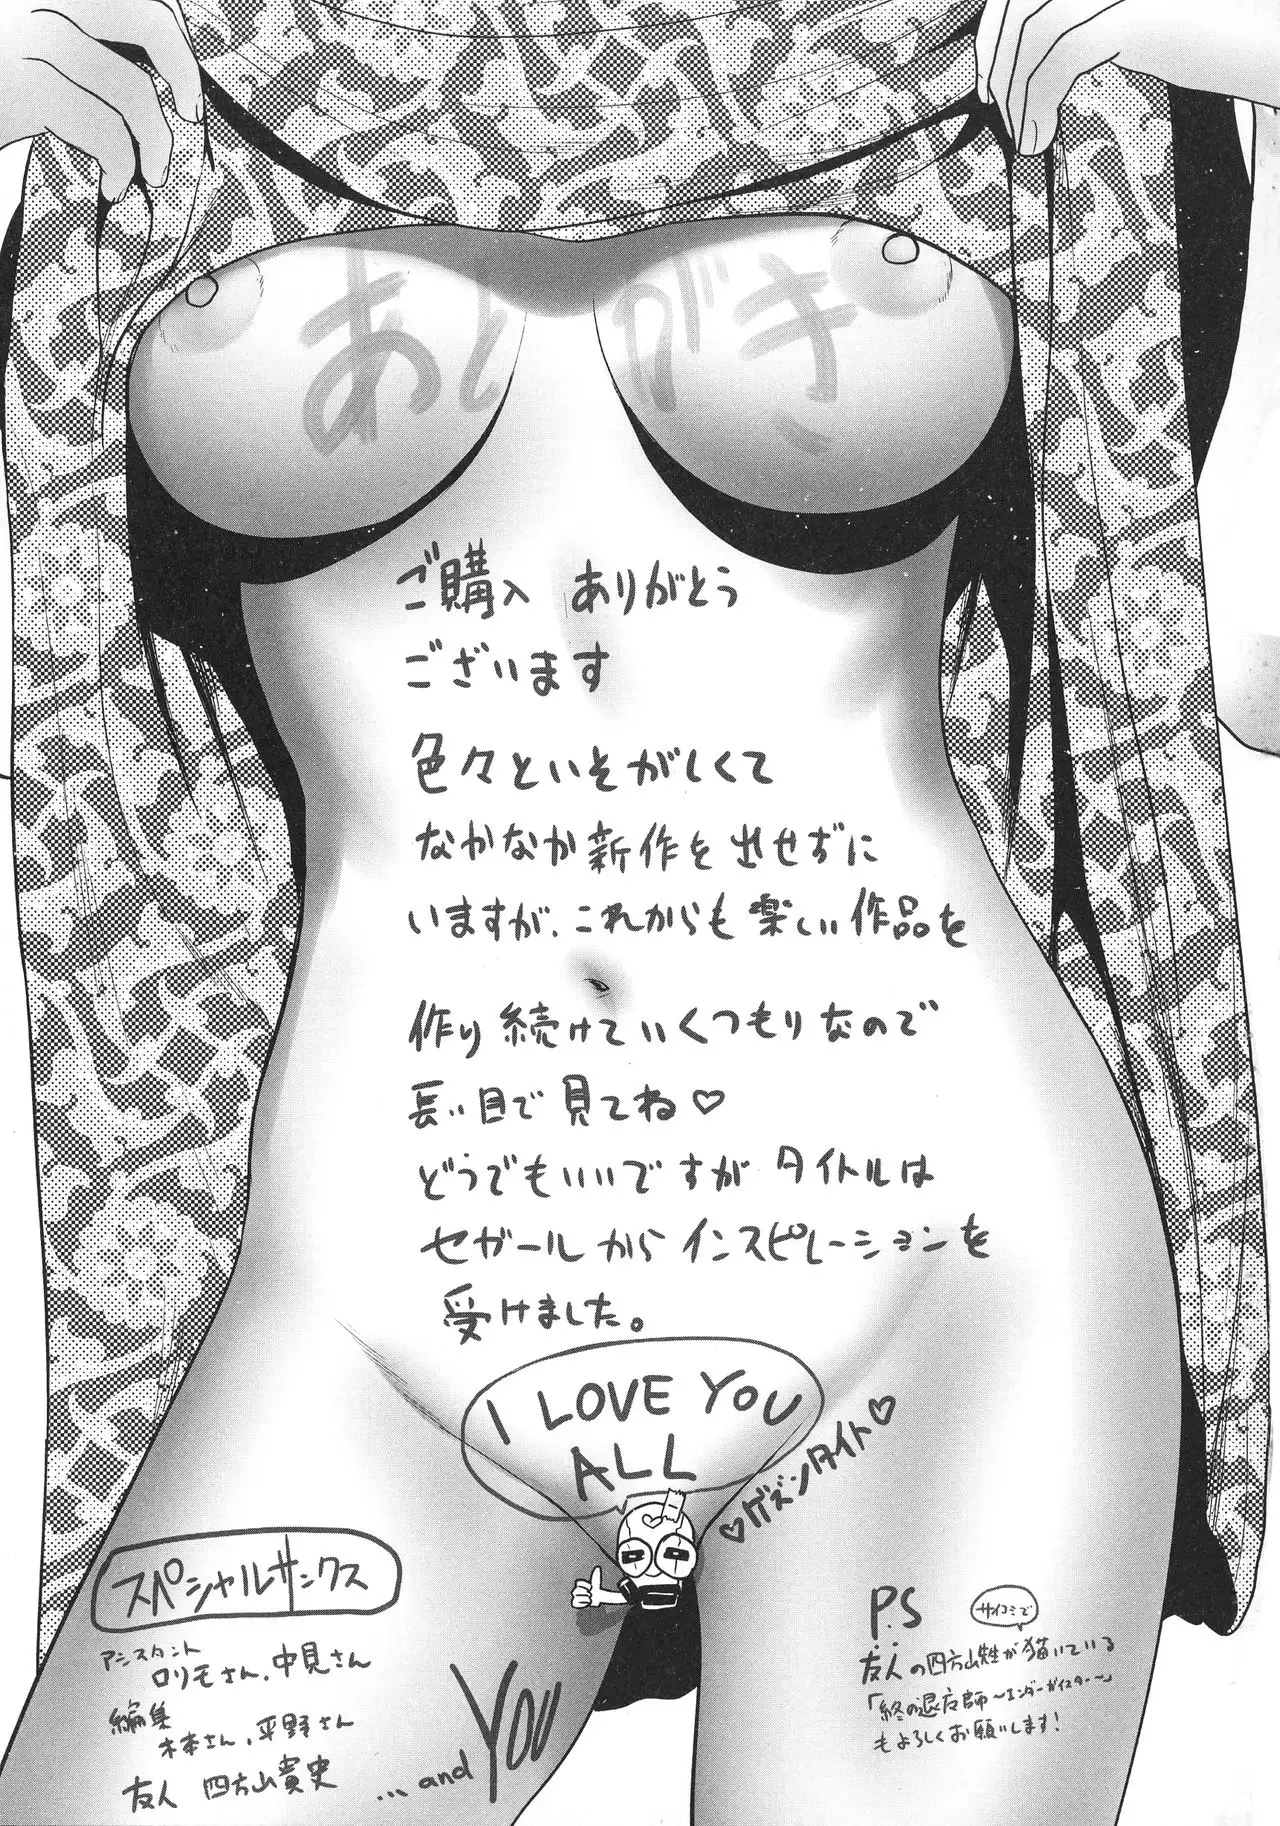 あとがき
ご購入 ありがとう
ございます
色々といそがしくて
なかなか新作を出せずに
いますが、これからも楽しい作品を
作り続けていくつもりなので
長い目で見てね♡
どうでもいいですが タイトルは
セガールからインスピレーションを
受けました。
I LOVE YOU
ALL
♡ゲズンタイト♡
スペシャルサンクス
アシスタント
ロリモさん、中見さん
編集
木本さん、平野さん
友人 四方山貴史
...and YOU
P.S
サイコミで
友人の四方山が描いている
「終の退店師～エンダーガイスター～」
もよろしくお願いします!